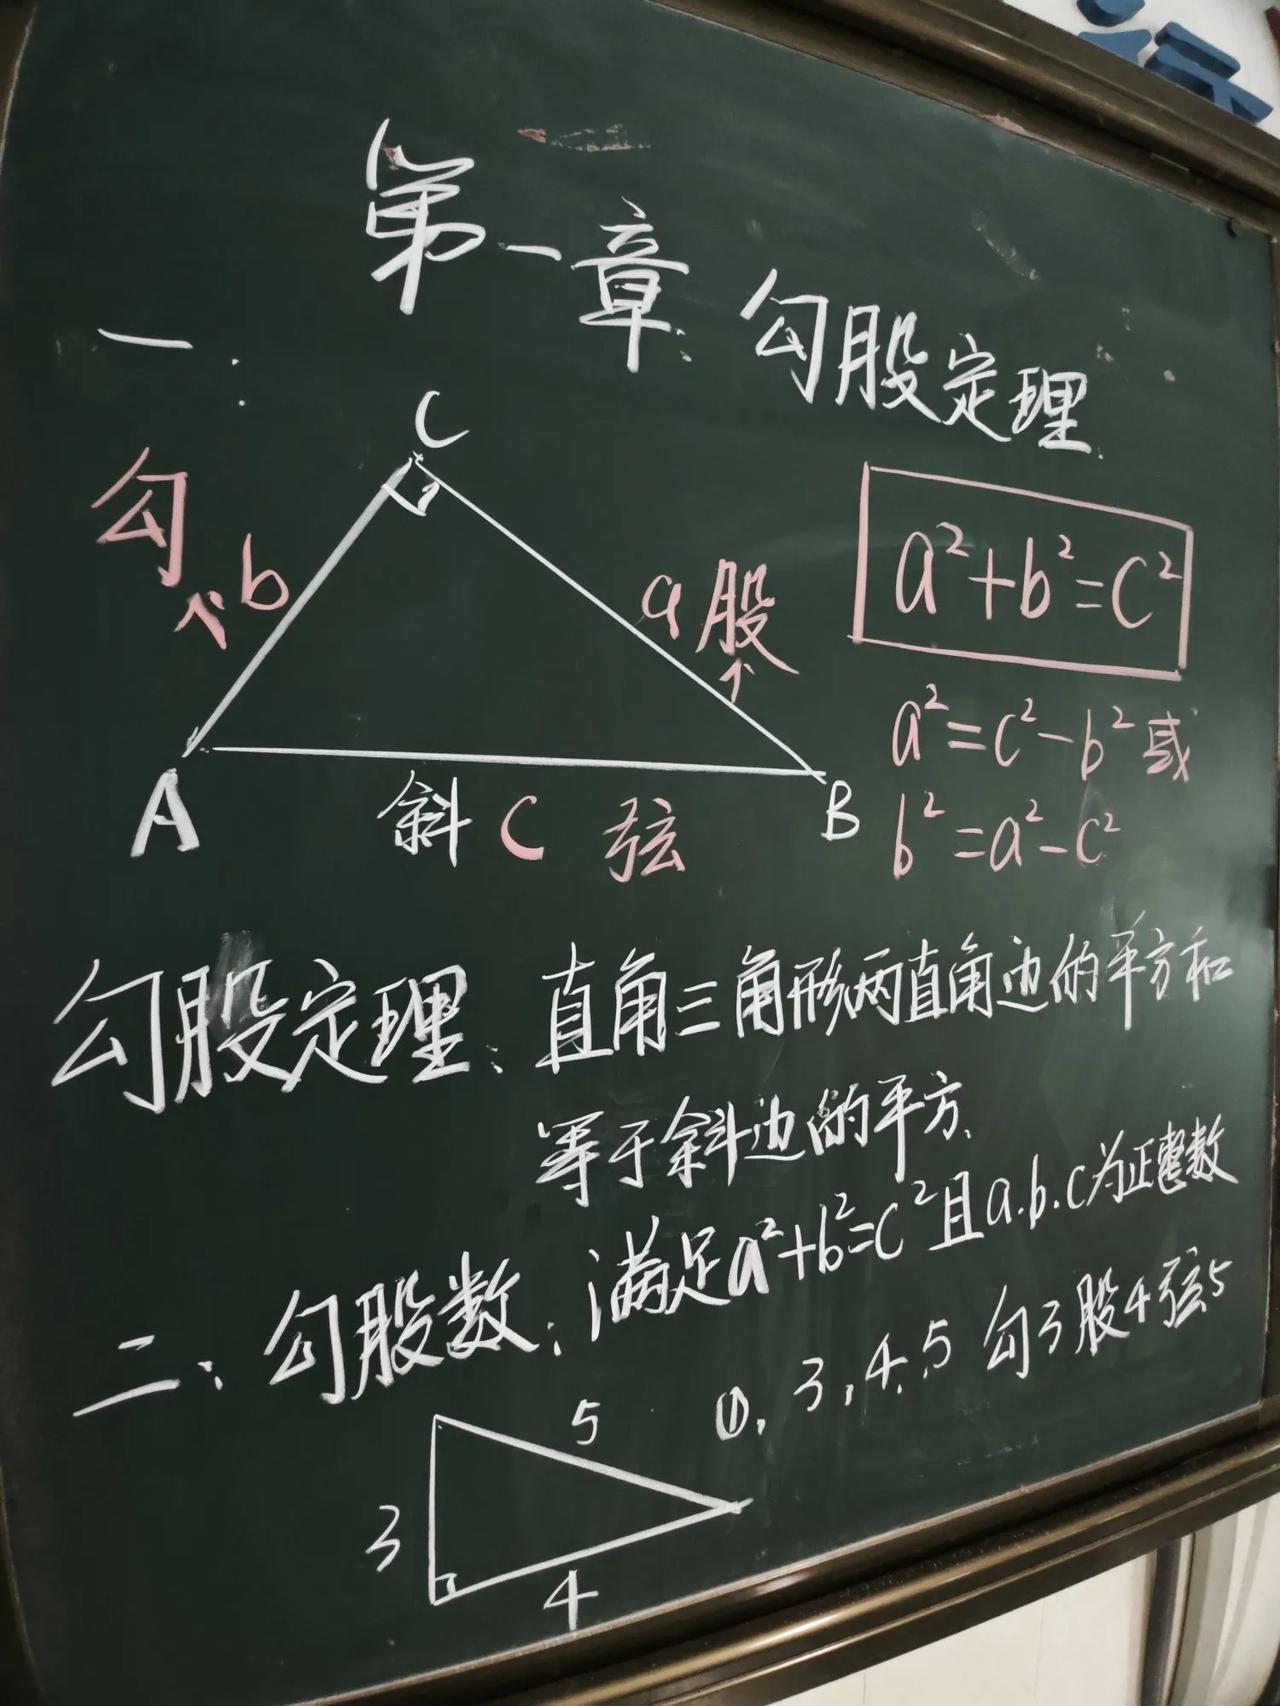 第一章. 勾股定理.
一.
C
勾 b
a 股
a²+b²=c²
a²=c²-b² 或
b²=a²-c²
A
斜 c 弦
B
勾股定理: 直角三角形两直角边的平方和
等于斜边的平方.
二: 勾股数: 满足a²+b²=c²且a.b.c为正整数
①, 3, 4, 5 勾3股4弦5
5
3
4